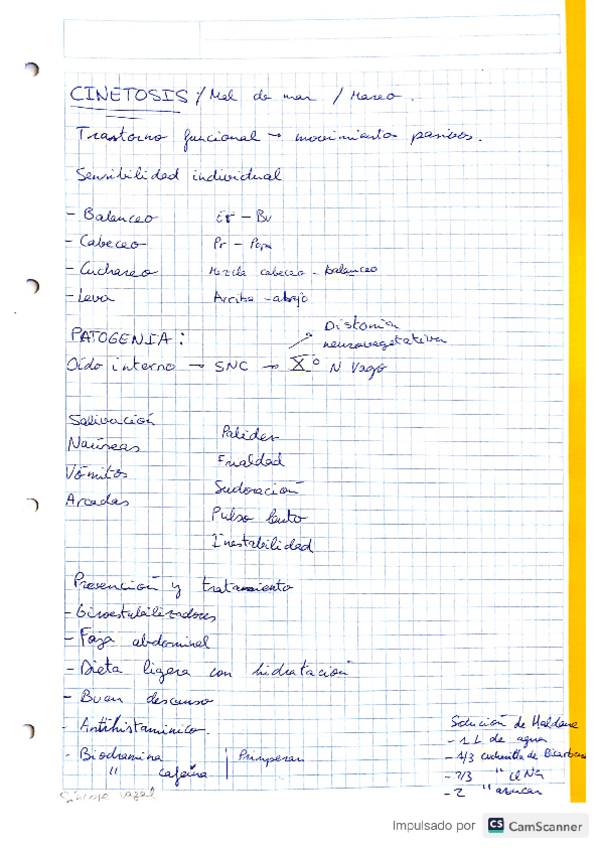 CINETOSIS / Mal de mar / Mareo.
Trastorno funcional → movimientos pasivos.
Sensibilidad individual
- Balanceo Er - Bv
- Cabeceo Pr - Popa
- Cuchareo Mezcla cabeceo - balanceo
- Leva Arriba - abajo
PATOGENIA:
Distonia
neurovegetativa
Oído interno → SNC → X° N Vago
Salivación
Naúseas
Vómitos
Arcadas
Palidez
Frialdad
Sudoración
Pulso lento
Inestabilidad
Prevención y tratamiento
- Giroestabilizadores
- Faja abdominal
- Dieta ligera con hidratación
- Buen descanso
- Antihistaminico
- Biodramina | Primperan
" cafeína
Síncope vagal
Solución de Haldane
- 1 L de agua
- 1/3 cucharilla de Bicarbona
- 2/3 " ClNa
- 2 " azucar
Impulsado por CS CamScanner